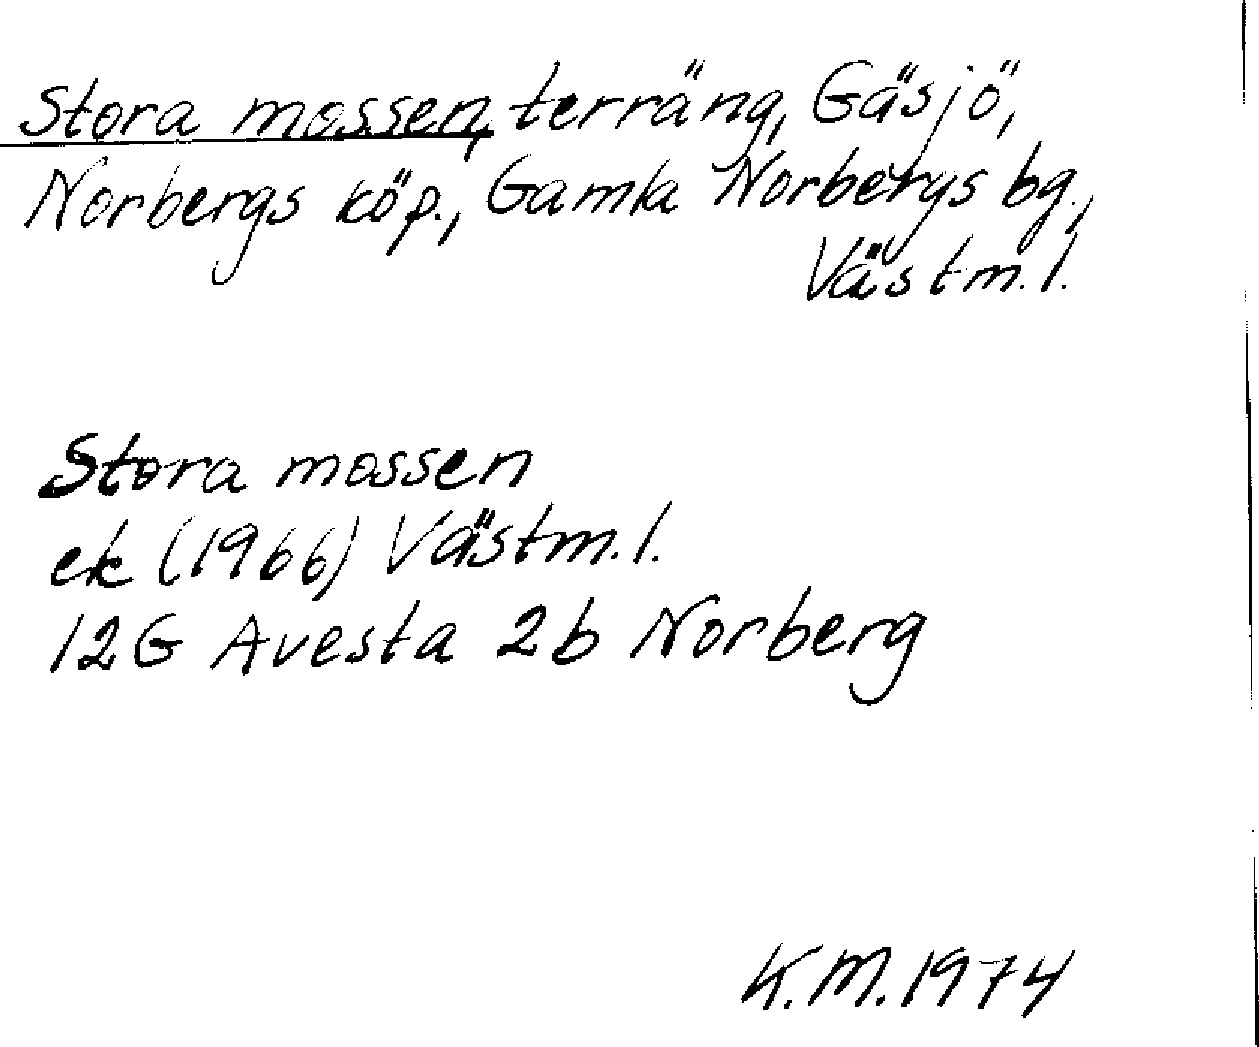 Stora mossen, terräng, Gäsjö,
Norbergs köp., Gamla Norbergs bg.,
Västm. l.
Stora mossen
ek (1966) Västm. l.
12G Avesta 2b Norberg
K.M. 1974